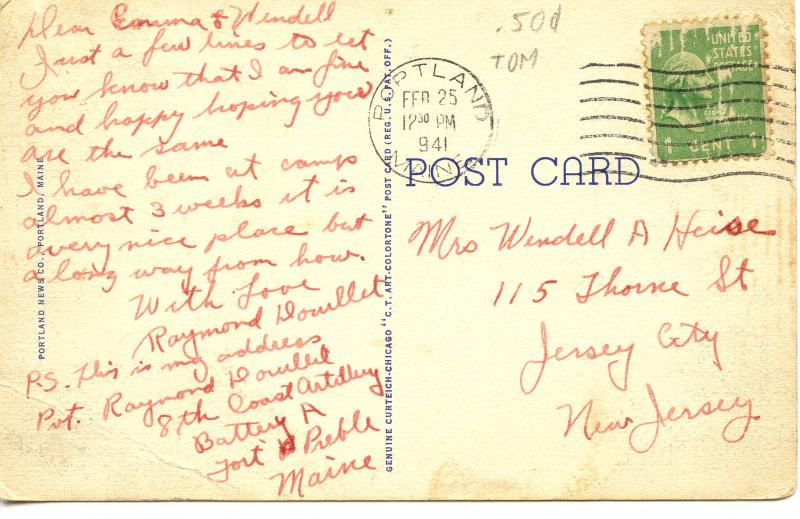 Dear Emma & Wendell
Just a few lines to let
you know that I am fine
and happy hoping you
are the same
I have been at camp
almost 3 weeks it is
a very nice place but
a long way from how.
With Love
Raymond Douillet
P.S. This is my address
Pvt. Raymond Douillet
8th Coast Artillery
Battery A
Fort Preble
Maine
PORTLAND NEWS CO., PORTLAND, MAINE
GENUINE CURTEICH-CHICAGO "C.T. ART-COLORTONE" POST CARD (REG. U.S. PAT. OFF.)
.50¢
TOM
PORTLAND
FEB 25
12 30 PM
941
MAINE
UNITED
STATES
POSTAGE
1 CENT 1
POST CARD
Mrs Wendell A Heise
115 Thorne St
Jersey City
New Jersey